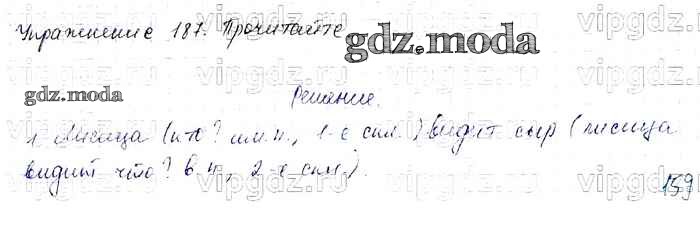 Упражнение 187. Прочитайте
gdz.moda
gdz.moda
Решение.
1. Лисица (кто? им.п., 1-е скл.) видит сыр (лисица
видит что? в.п., 2-е скл.).
159
vipgdz.ru vipgdz.ru vipgdz.ru vipgdz.ru